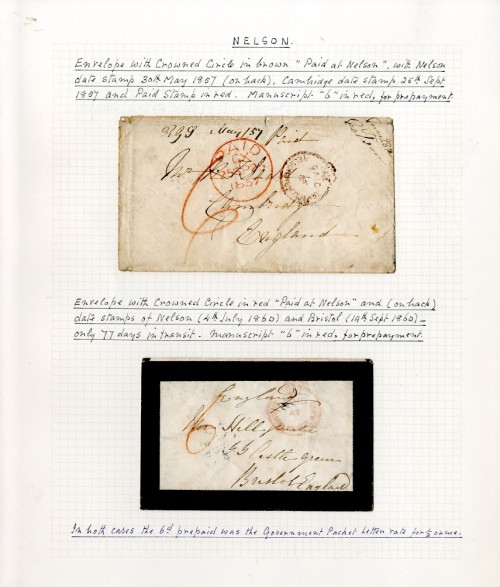 NELSON.
Envelope with Crowned Circle in brown "Paid at Nelson", with Nelson
date stamp 30th May 1857 (on back), Cambidge date stamp 25th Sept
1857 and Paid Stamp in red. Manuscript "6" in red, for prepayment.
May/57 Paid
PAID
1857
6
Cambridge
England
Envelope with Crowned Circle in red "Paid at Nelson" and (on back)
date stamps of Nelson (4th July 1860) and Bristol (19th Sept 1860) -
only 77 days in transit. Manuscript "6" in red, for prepayment.
England
6
Castle Green
Bristol England
In both cases the 6d prepaid was the Government Packet Letter rate for ½ ounce.